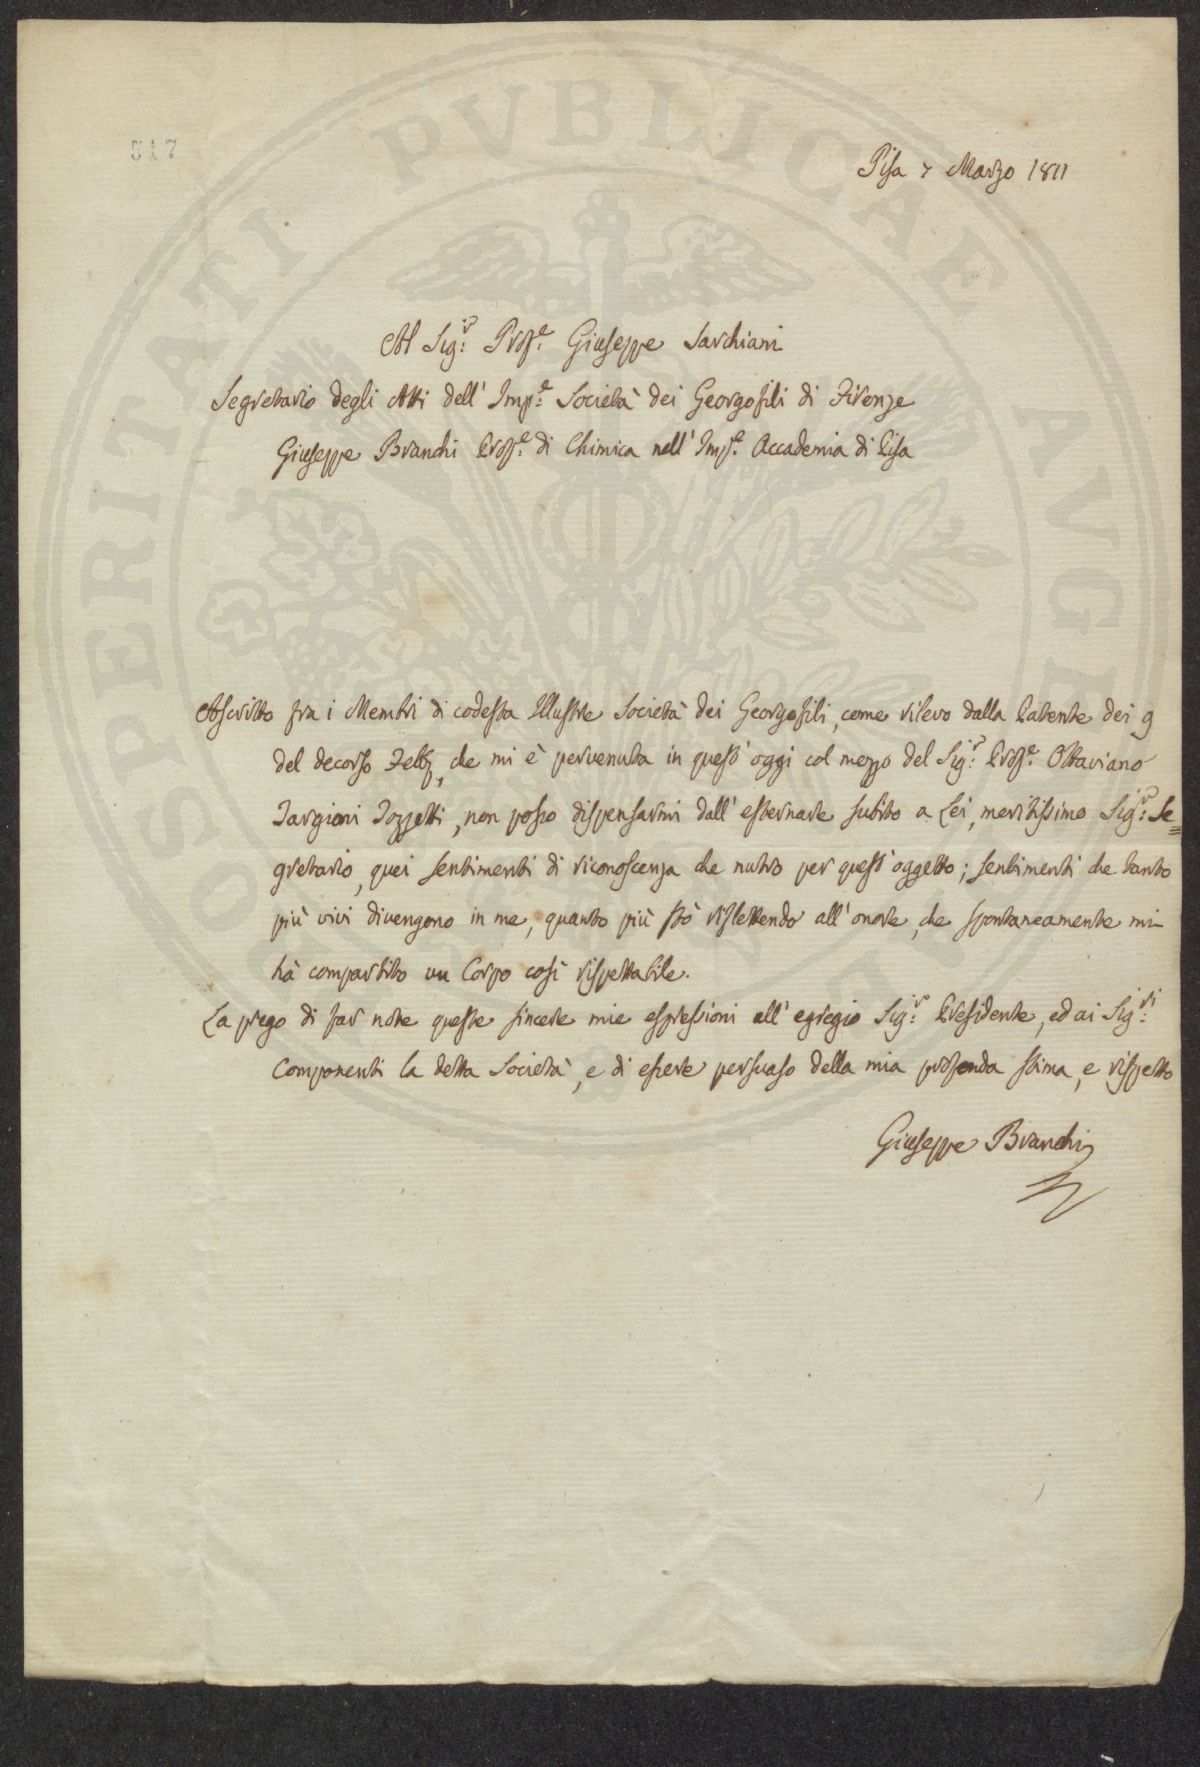 517
Pisa 7 Marzo 1811
Al Sig:r Prof:e Giuseppe Sarchiani
Segretario degli Atti dell' Imp:e Società dei Georgofili di Firenze
Giuseppe Branchi Prof:e di Chimica nell' Imp:e Accademia di Pisa
Ascritto fra i Membri di codesta Illustre Società dei Georgofili, come rilevo dalla Patente dei 9
del decorso Febb, che mi è pervenuta in quest' oggi col mezzo del Sig:r Prof:e Ottaviano
Targioni Tozzetti, non posso dispensarmi dall' esternare subito a Lei, meritissimo Sig:r Se=
gretario, quei sentimenti di riconoscenza che nutro per quest' oggetto; sentimenti che tanto
più vivi divengono in me, quanto più stò riflettendo all' onore, che spontaneamente mi
hà compartito un Corpo così rispettabile.
La prego di far note queste sincere mie espressioni all' egregio Sig:r Presidente, ed ai Sig:ri
Componenti la detta Società, e di essere persuaso della mia profonda stima, e rispetto
Giuseppe Branchi
PROSPERITATI PUBLICAE AUGENDAE